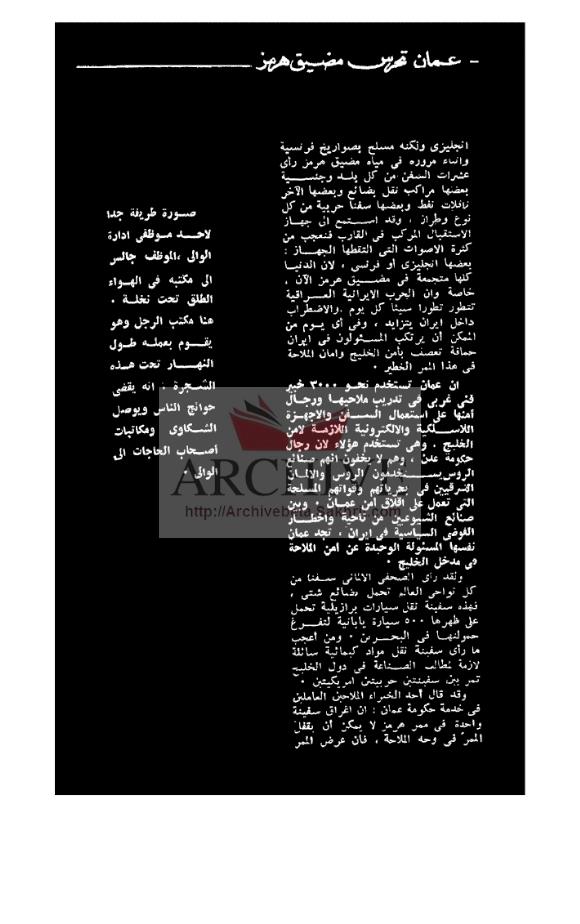 - عمان تحرس مضيق هرمز
انجليزى ولكنه مسلح بصواريخ فرنسية
واثناء مروره فى مياه مضيق هرمز رأى
عشرات السفن من كل بلد وجنسية
بعضها مراكب نقل بضائع وبعضها الآخر
ناقلات نفط وبعضها سفنا حربية من كل
نوع وطراز ، وقد استمع الى جهاز
الاستقبال المركب فى القارب فتعجب من
كثرة الاصوات التى التقطها الجهاز :
بعضها انجليزى أو فرنسى ، لان الدنيا
كلها متجمعة فى مضيق هرمز الآن .
خاصة وان الحرب الايرانية العراقية
تتطور تطورا سيئا كل يوم والاضطراب
داخل ايران يتزايد ، وفى أى يوم من
الممكن أن يرتكب المسئولون فى ايران
حماقة تعصف بأمن الخليج وامان الملاحة
فى هذا الممر الخطير .
ان عمان تستخدم نحو ٣٠٠٠ خبير
فنى غربى فى تدريب ملاحيها ورجال
أمنها على استعمال السفن والاجهزة
اللاسلكية والالكترونية اللازمة لامن
الخليج . وهى تستخدم هؤلاء لان رجال
حكومة عدن ، وهم لا يخفون انهم صنائع
الروس يستخدمون الروس والالمان
الشرقيين فى بحرياتهم وقواتهم المسلحة
التى تعمل على اقلاق امن عمان ، وبين
صنائع الشيوعين من ناحية واخطار
الفوضى السياسية فى ايران ، تجد عمان
نفسها المسئولة الوحيدة عن امن الملاحة
فى مدخل الخليج .
ولقد رأى الصحفى الالمانى سفنا من
كل نواحى العالم تحمل بضائع شتى ،
فهذه سفينة نقل سيارات برازيلية تحمل
على ظهرها ٥٠٠ سيارة يابانية لتفرغ
حمولتها فى البحرين . ومن أعجب
ما رأى سفينة نقل مواد كيمائية سائلة
لازمة لمطالب الصناعة فى دول الخليج
تمر بين سفينتين حربيتين امريكيتين .
وقد قال أحد الخبراء الملاحين العاملين
فى خدمة حكومة عمان : ان اغراق سفينة
واحدة فى ممر هرمز لا يمكن أن يقفل
الممر فى وجه الملاحة ، فان عرض الممر
صورة طريفة جدا
لاحد موظفى ادارة
الوالى ،الموظف جالس
الى مكتبه فى الهواء
الطلق تحت نخلة .
هنا مكتب الرجل وهو
يقوم بعمله طول
النهار تحت هذه
الشجرة . انه يقضى
حوائج الناس ويوصل
الشكاوى ومكاتبات
أصحاب الحاجات الى
الوالى .
ARCHIVE
http://Archivebeta.Sakhrit.com